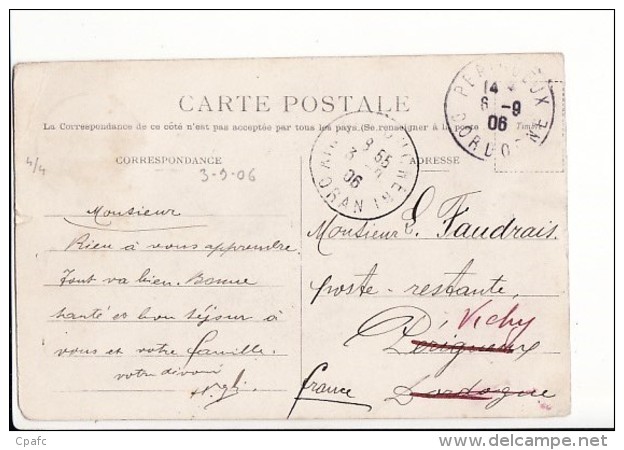 CARTE POSTALE
La Correspondance de ce côté n'est pas acceptée par tous les pays. (Se renseigner à la poste
Timbre
CORRESPONDANCE
ADRESSE
4/4
3-9-06
Monsieur
Rien à vous apprendre
Tout va bien. Bonne
santé et bon séjour à
vous et votre famille.
votre dévoué
Monsieur L. Faudrais.
poste-restante,
Vichy
Périgueux
Dordogne
france
PERIGUEUX
DORDOGNE
14
6 -9
06
8 55
3 -9
06
ORAN
Cpafc
delcampe.net